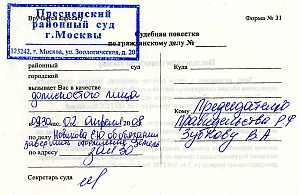 Вручается адресату
Форма № 31
Пресненский
районный суд
г.Москвы
123242, г. Москва, ул. Зоологическая, д. 20
Судебная повестка
по гражданскому делу №
районный суд
городской
вызывает Вас в качестве
должностного лица
Кому Председателю
Правительства РФ
Зубкову В.А
к 0930 час. 02 апреля 08
по делу Новикова об обязании
по адресу зал 30
Секретарь суда